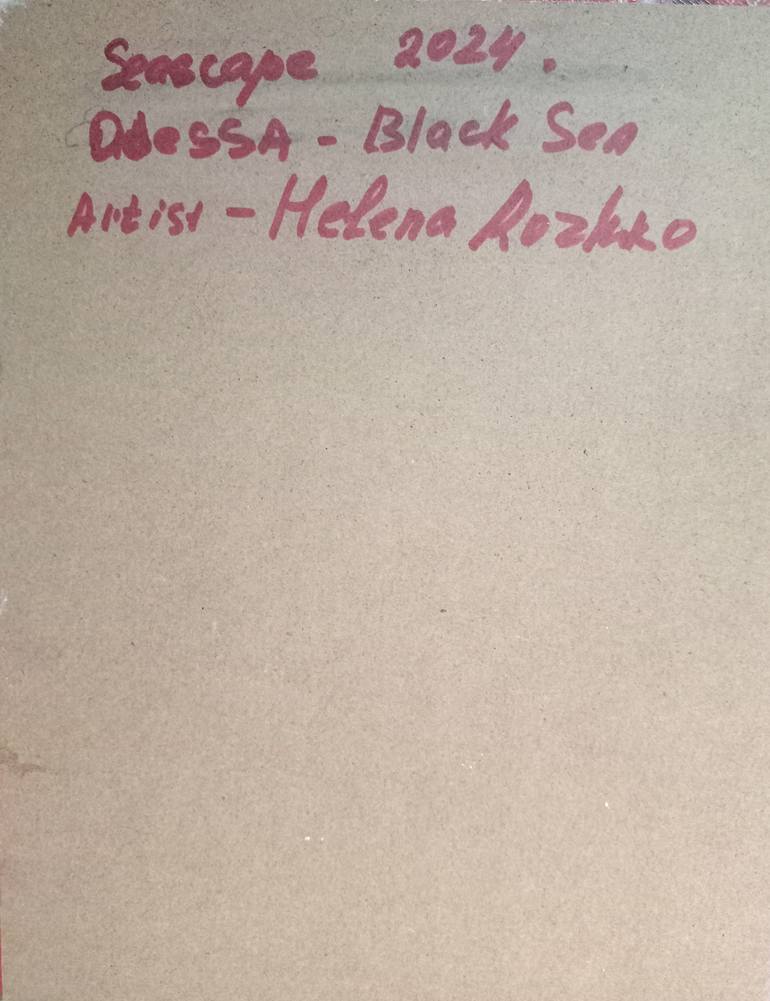 Seascape 2024.
OdessA - Black Sea
Artist - Helena Rozhko